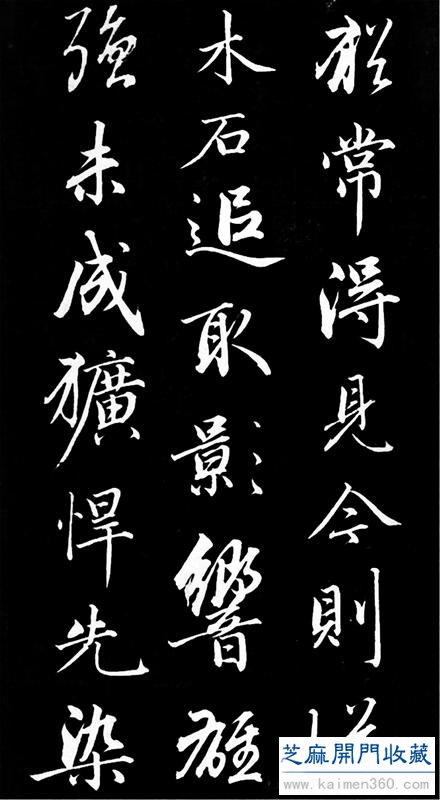 常得見今則
木石追取影響雄
強未成獷悍先染
芝麻開門收藏
www.kaimen360.com